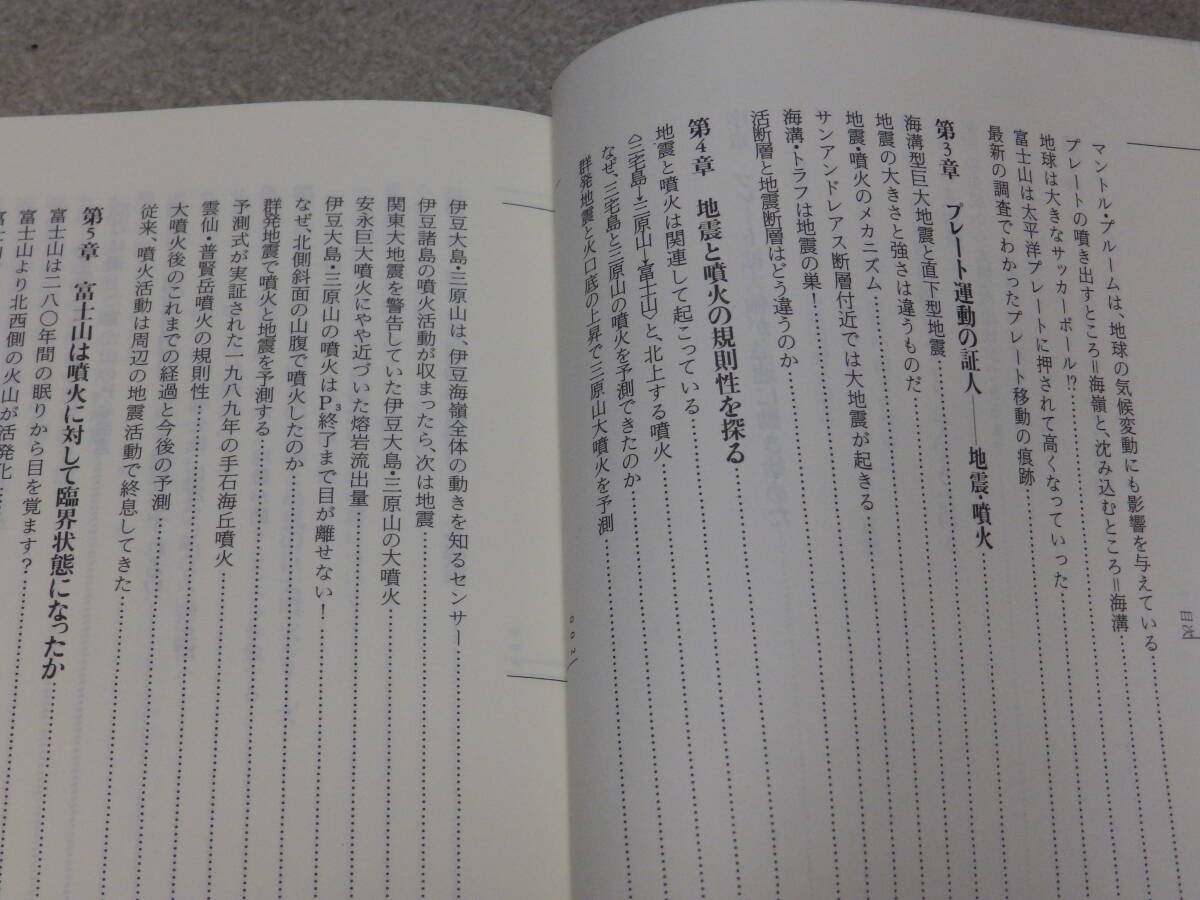 目次
マントル・プルームは、地球の気候変動にも影響を与えている
プレートの噴き出すところ＝海嶺と、沈み込むところ＝海溝
地球は大きなサッカーボール!?
富士山は太平洋プレートに押されて高くなっていった
最新の調査でわかったプレート移動の痕跡
第3章 プレート運動の証人――地震・噴火
海溝型巨大地震と直下型地震
地震の大きさと強さは違うものだ
地震・噴火のメカニズム
サンアンドレアス断層付近では大地震が起きる
海溝・トラフは地震の巣！
活断層と地震断層はどう違うのか
第4章 地震と噴火の規則性を探る
地震と噴火は関連して起こっている
〈三宅島→三原山→富士山〉と、北上する噴火
なぜ、三宅島と三原山の噴火を予測できたのか
群発地震と火口底の上昇で三原山大噴火を予測
伊豆大島・三原山は、伊豆海嶺全体の動きを知るセンサー
伊豆諸島の噴火活動が収まったら、次は地震
関東大地震を警告していた伊豆大島・三原山の大噴火
安永巨大噴火にやや近づいた熔岩流出量
伊豆大島・三原山の噴火はP3終了まで目が離せない！
なぜ、北側斜面の山腹で噴火したのか
群発地震で噴火と地震を予測する
予測式が実証された一九八九年の手石海丘噴火
雲仙・普賢岳噴火の規則性
大噴火後のこれまでの経過と今後の予測
従来、噴火活動は周辺の地震活動で終息してきた
第5章 富士山は噴火に対して臨界状態になったか
富士山は二八〇年間の眠りから目を覚ます？
富士山より北西側の火山が活発化